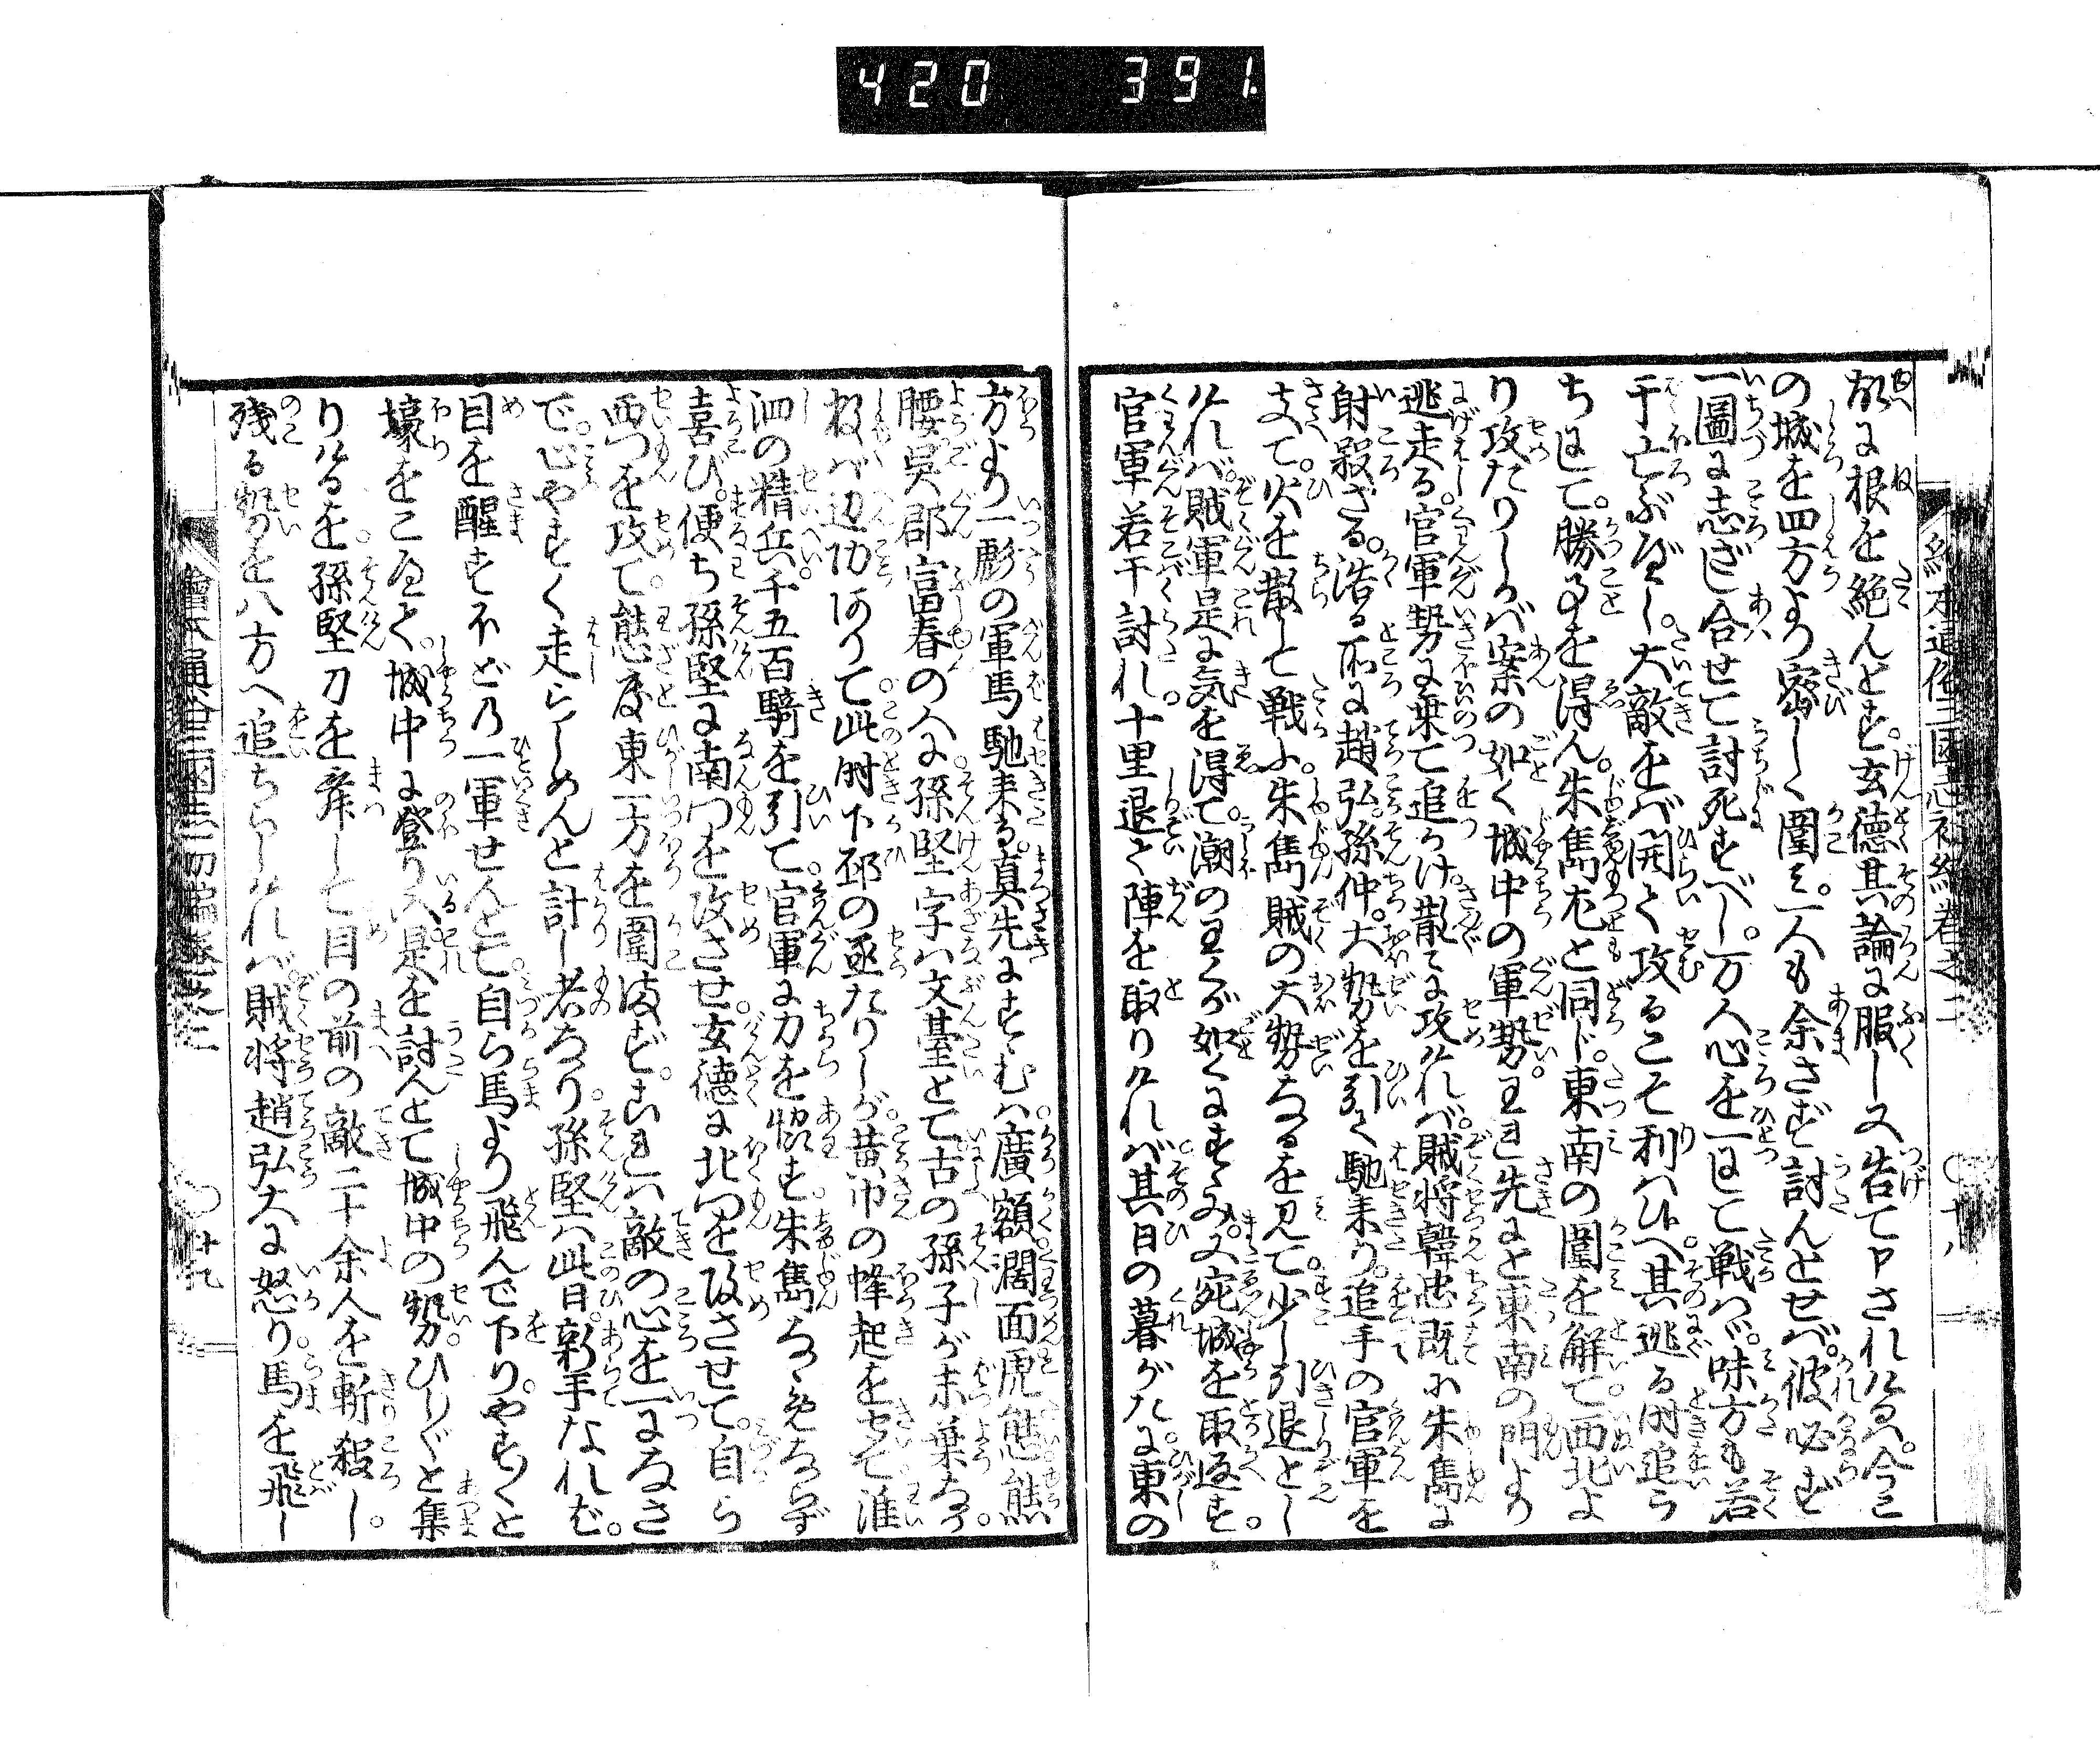 420 391.
繪本通俗三國志初編巻之二 〇十八
故に根を絶んとす。玄徳其論に服し又告て申されけるハ。今こ
の城を四方より密しく圍ミ。一人も余さず討んとせバ。彼必ず
一圖に志ざし合せて討死すべし。万人心を一にして戦ハヾ。味方も若
干亡ぶべし。大敵をバ開て攻るこそ利ハひへ其逃る時追う
ちにして。勝ことを得ん。朱雋尤と同じ。東南の圍を解て西北よ
り攻たりしかバ案の如く城中の軍勢。われ先にと東南の門より
逃走る。官軍勢に乗て追かけ。散〻に攻けれバ。賊将韓忠既に朱雋に
射殺さる。浩る所に趙弘。孫仲。大勢を引て馳来り。追手の官軍を
支て。火を散して戦ふ。朱雋賊の大勢なるを見て。少し引退としけ
れバ。賊軍是に気を得て。潮のわくが如くにすゝみ。又宛城を取返す。
官軍若干討れ。十里退て陣を取りけれバ。其日の暮がたに。東の
方より一彪の軍馬馳来る。真先にすゝむハ。廣額濶面虎態熊
腰呉郡冨春の人に。孫堅字ハ文䑓とて。古の孫子が末葉なり。
初ハ辺功ありて。此時下邳の丞たりしが。黄巾の蜂起をせぐ。淮
泗の精兵。千五百騎を引て。官軍に力を恊す。朱雋なゝめならず
喜び。便ち孫堅に南門を攻させ。玄徳に北門を攻させて。自ら
西門を攻て。態と東一方を圍まず。これハ敵の心を一になさ
で。心やすく走らしめんと計し者なり。孫堅ハ此日。新手なれば。
目を醒すほどの一軍せんとて。自ら馬より飛んで下り。やす〱と
壕をこえて。城中に登り入。是を討んとて城中の勢。ひし〲と集
りけるを。孫堅刀を舞して目の前の敵二十余人を斬殺し。
残る勢を八方へ追ちらしけれバ。賊将趙弘大に怒り。馬を飛し
繪本通俗三國志初編巻之二 〇十九